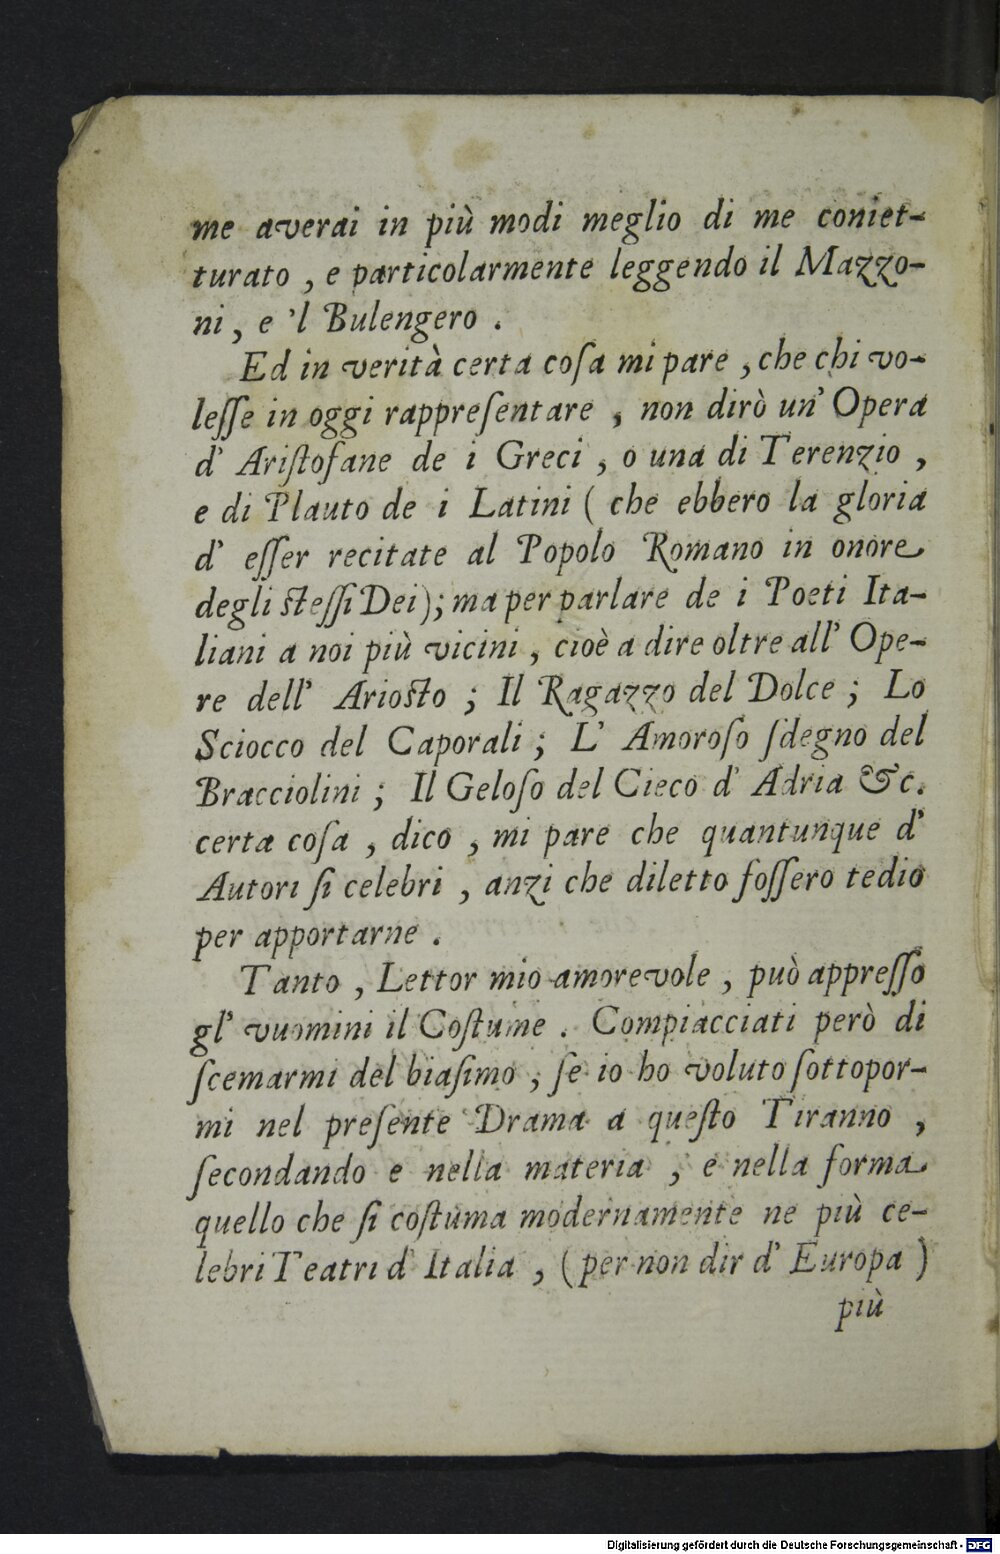 me averai in più modi meglio di me coniet-
turato , e particolarmente leggendo il Mazzo-
ni , e 'l Bulengero .
Ed in verità certa coſa mi pare , che chi vo-
leſſe in oggi rappreſentare , non dirò un' Opera
d' Ariſtofane de i Greci , o una di Terenzio ,
e di Plauto de i Latini ( che ebbero la gloria
d' eſſer recitate al Popolo Romano in onore
degli steſſi Dei ) ; ma per parlare de i Poeti Ita-
liani a noi più vicini , cioè a dire oltre all' Ope-
re dell' Ariosto ; Il Ragazzo del Dolce ; Lo
Sciocco del Caporali ; L' Amoroſo ſdegno del
Bracciolini ; Il Geloſo del Cieco d' Adria &c.
certa coſa , dico , mi pare che quantunque d'
Autori ſi celebri , anzi che diletto foſſero tedio
per apportarne .
Tanto , Lettor mio amorevole , può appreſſo
gl' vuomini il Coſtume . Compiacciati però di
ſcemarmi del biaſimo , ſe io ho voluto ſottopor-
mi nel preſente Drama a queſto Tiranno ,
ſecondando e nella materia , e nella forma
quello che ſi coſtuma modernamente ne più ce-
lebri Teatri d' Italia , ( per non dir d' Europa )
più
Digitalisierung gefördert durch die Deutsche Forschungsgemeinschaft - DFG